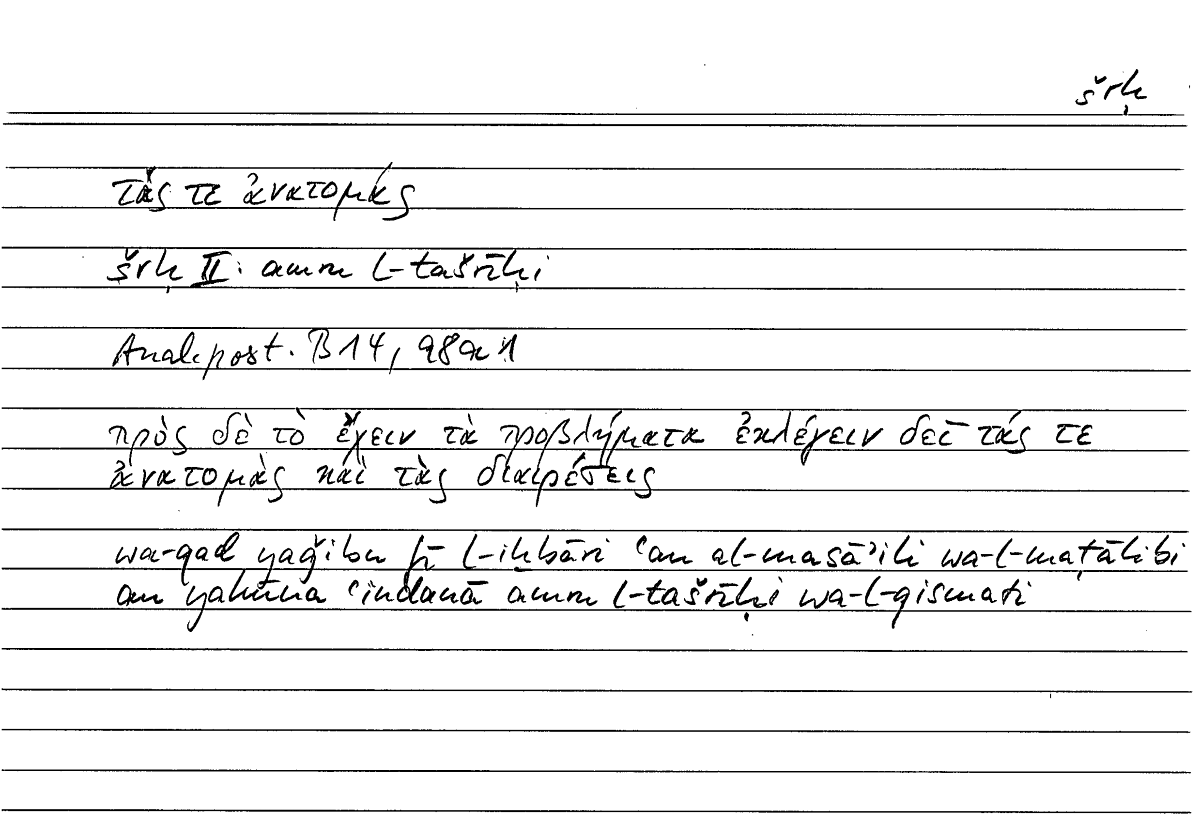 šrḥ
τάς τε ἀνατομάς
šrḥ II: amm l-tašrīḥi
Anal. post. B 14, 98a1
πρὸς δὲ τὸ ἔχειν τὰ προβλήματα ἐκλέγειν δεῖ τάς τε
ἀνατομὰς καὶ τὰς διαιρέσεις
wa-qad yaǧibu fī l-iḫbāri ʿan al-masāʾili wa-l-maṭālibi
an yakūna ʿindanā amm l-tašrīḥi wa-l-qismati